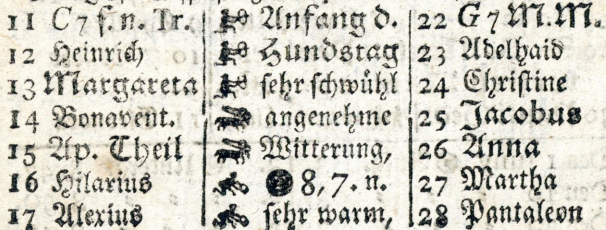 11 C 7 f. n. Tr. Anfang d. 22 G 7 M. M.
12 Heinrich Hundstag 23 Adelhaid
13 Margareta sehr schwühl 24 Christine
14 Bonavent. angenehme 25 Jacobus
15 Ap. Theil Witterung, 26 Anna
16 Hilarius 8, 7. n. 27 Martha
17 Alexius sehr warm, 28 Pantaleon